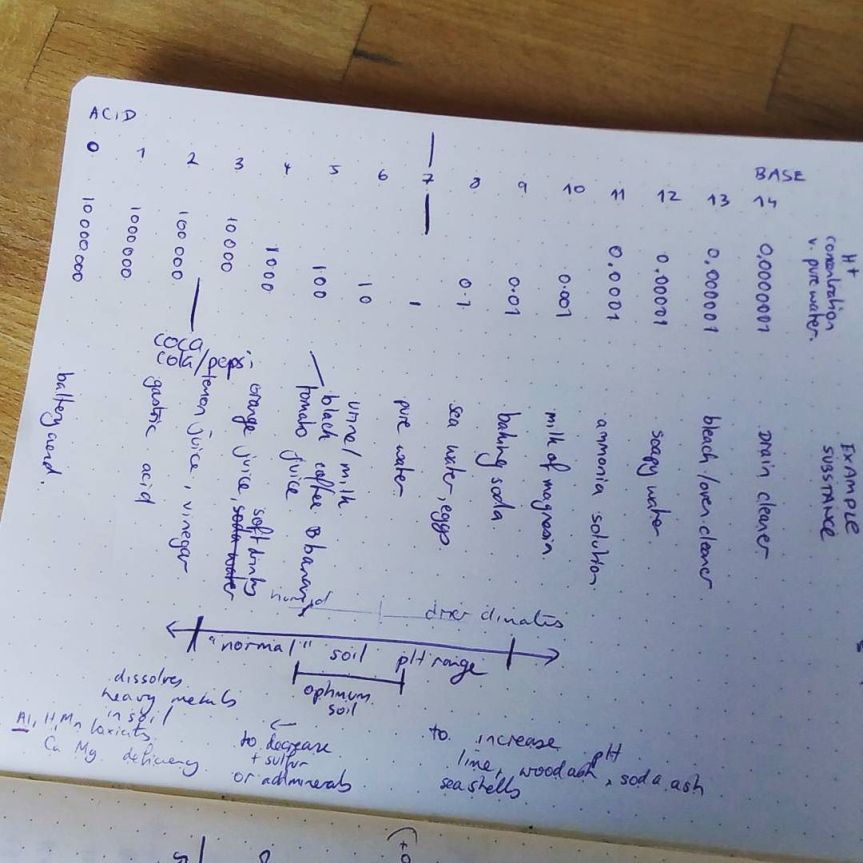 ACID
BASE
0 1 2 3 4 5 6 7 8 9 10 11 12 13 14
H+
concentration
v. pure water
10000000
1000000
100000
10000
1000
100
10
1
0.1
0.01
0.001
0.0001
0.00001
0.000001
0.0000001
EXAMPLE
SUBSTANCE
battery acid.
gastric acid
coca
cola/pepsi
lemon juice, vinegar
orange juice, soda water
soft drinks
tomato juice
black coffee & banana
urine/milk
pure water
sea water, eggs
baking soda
milk of magnesia
ammonia solution
soapy water
bleach/oven cleaner
drain cleaner
humid
drier climates
"normal" soil pH range
optimum
soil
dissolves
heavy metals
in soil
Al, H, Mn toxicity
Ca Mg deficiency
←
to decrease
+ sulfur
or add minerals
to increase pH
lime, wood ash, soda ash
sea shells